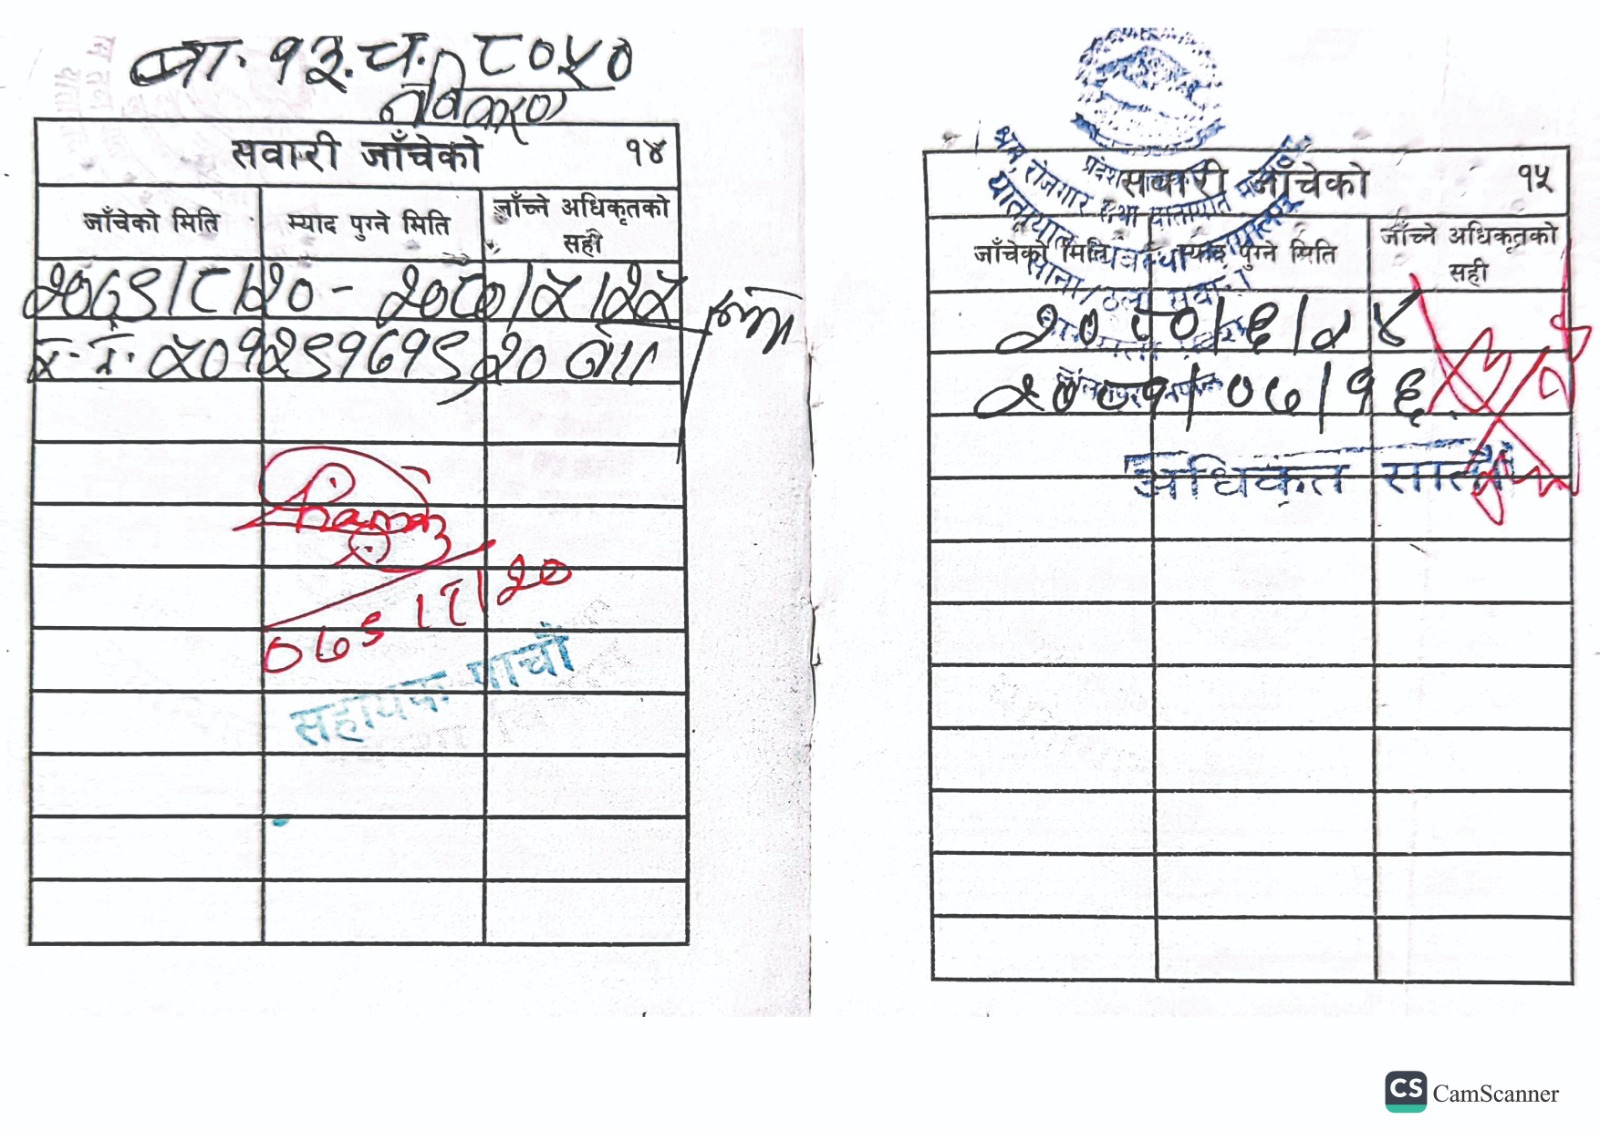 बा. १३.च. ८०५०
नविकरण
सवारी जाँचेको १४
जाँचेको मिति म्याद पुग्ने मिति जाँच्ने अधिकृतको सही
२०७९/८/२० - २०८०/५/२५
५०१२९१७१९ २०
०७९/८/२०
सहायक पाचौं
प्रदेश
श्रम, रोजगार तथा यातायात
यातायात व्यवस्था कार्यालय
साना / ठूला सवारी
सवारी जाँचेको १५
जाँचेको मिति म्याद पुग्ने मिति जाँच्ने अधिकृतको सही
२०८०/६/२४
२०८१/०७/१६
अधिकृत सातौं
CS CamScanner